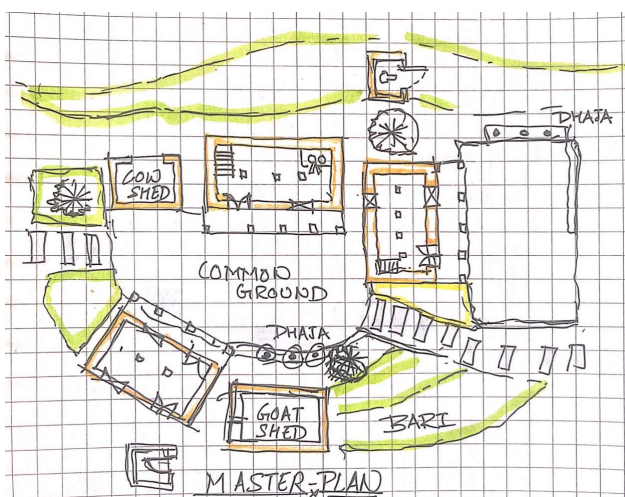 DHAJA
COW
SHED
COMMON
GROUND
DHAJA
GOAT
SHED
BARI
MASTER-PLAN